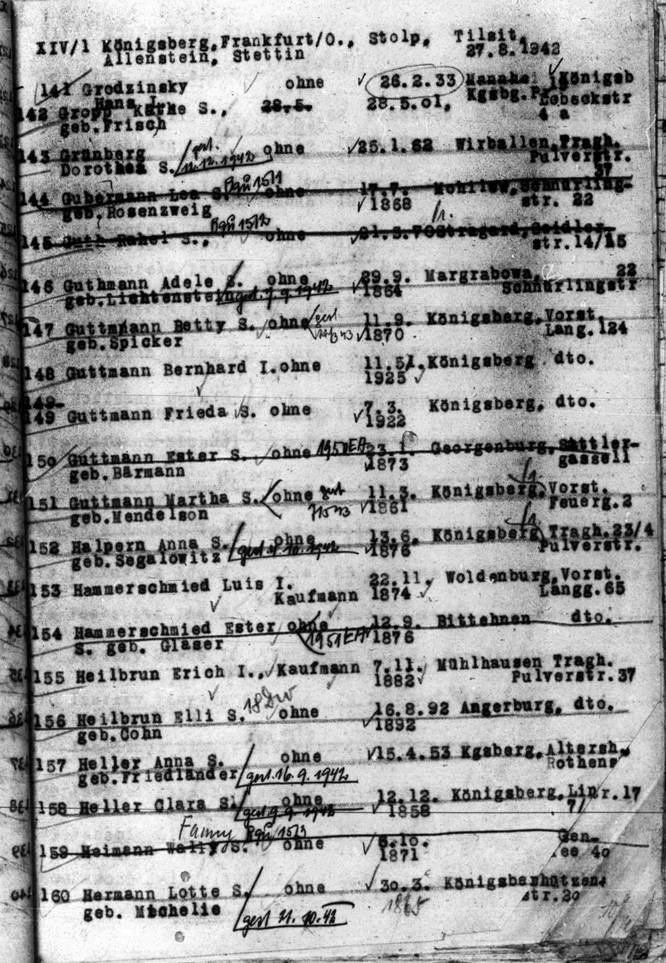 XIV/1 Königsberg, Frankfurt/O., Stolp, Tilsit,
Allenstein, Stettin 27.8.1942
141 Grodzinsky ohne 26.2.33 Königsb
Hans I. Kgsbg.
142 Gropp Käthe S., 28.5. 28.5.01, Lobeckstr
geb. Frisch 4 a
143 Grünberg gest. ohne 25.1.62 Wirballen, Tragh.
Dorothea S. 12.12.1942 Pulverstr.
37
144 Gubermann Lea S. ohne 17.7. Mohilew, Schnürling-
geb. Rosenzweig 1868 str. 22
145 Guth Rahel S., ohne 21.3.70 Stragard, Seidler-
str. 14/15
146 Guthmann Adele S. ohne 29.9. Margrabowa, 22
geb. Lichtenstein gest. 9.9.1942 1864 Schnürlingstr
147 Guttmann Betty S. ohne gest 11.9. Königsberg, Vorst.
geb. Spicker 1870 Lang. 124
148 Guttmann Bernhard I. ohne 11.5. Königsberg dto.
1925
149
149 Guttmann Frieda S. ohne 7.3. Königsberg, dto.
1922
150 Guttmann Ester S. ohne 1950 EA 23.1. Georgenburg, Sattler-
geb. Bärmann 1873 gasse 11
151 Guttmann Martha S. ohne gest 11.3. Königsberg, Vorst.
geb. Mendelson 1861 Feuerg. 2
152 Halpern Anna S. ohne 13.6. Königsberg Tragh. 23/4
geb. Segalowitz 1876 Pulverstr.
153 Hammerschmied Luis I. 22.11. Woldenburg, Vorst.
Kaufmann 1874 Langg. 65
154 Hammerschmied Ester ohne 12.9. Bittehnen dto.
S. geb. Glaser 1951 EA 1876
155 Heilbrun Erich I., Kaufmann 7.11. Mühlhausen Tragh.
1882 Pulverstr. 37
156 Heilbrun Elli S. ohne 16.8.92 Angerburg, dto.
geb. Cohn 1892
157 Heller Anna S. ohne 15.4.53 Kgsberg, Altersh.
geb. Friedländer gest. 16.9.1942 Rothens
158 Heller Clara S. ohne 12.12. Königsberg, Linr. 17
gest 9.9.1942 1858 7/
Fanny
159 Heimann Wally S. ohne 6.10. Gen-
1871 see 40
160 Hermann Lotte S. ohne 30.3. Königsberg
geb. Michelie gest 21.10.42 1865 str. 20